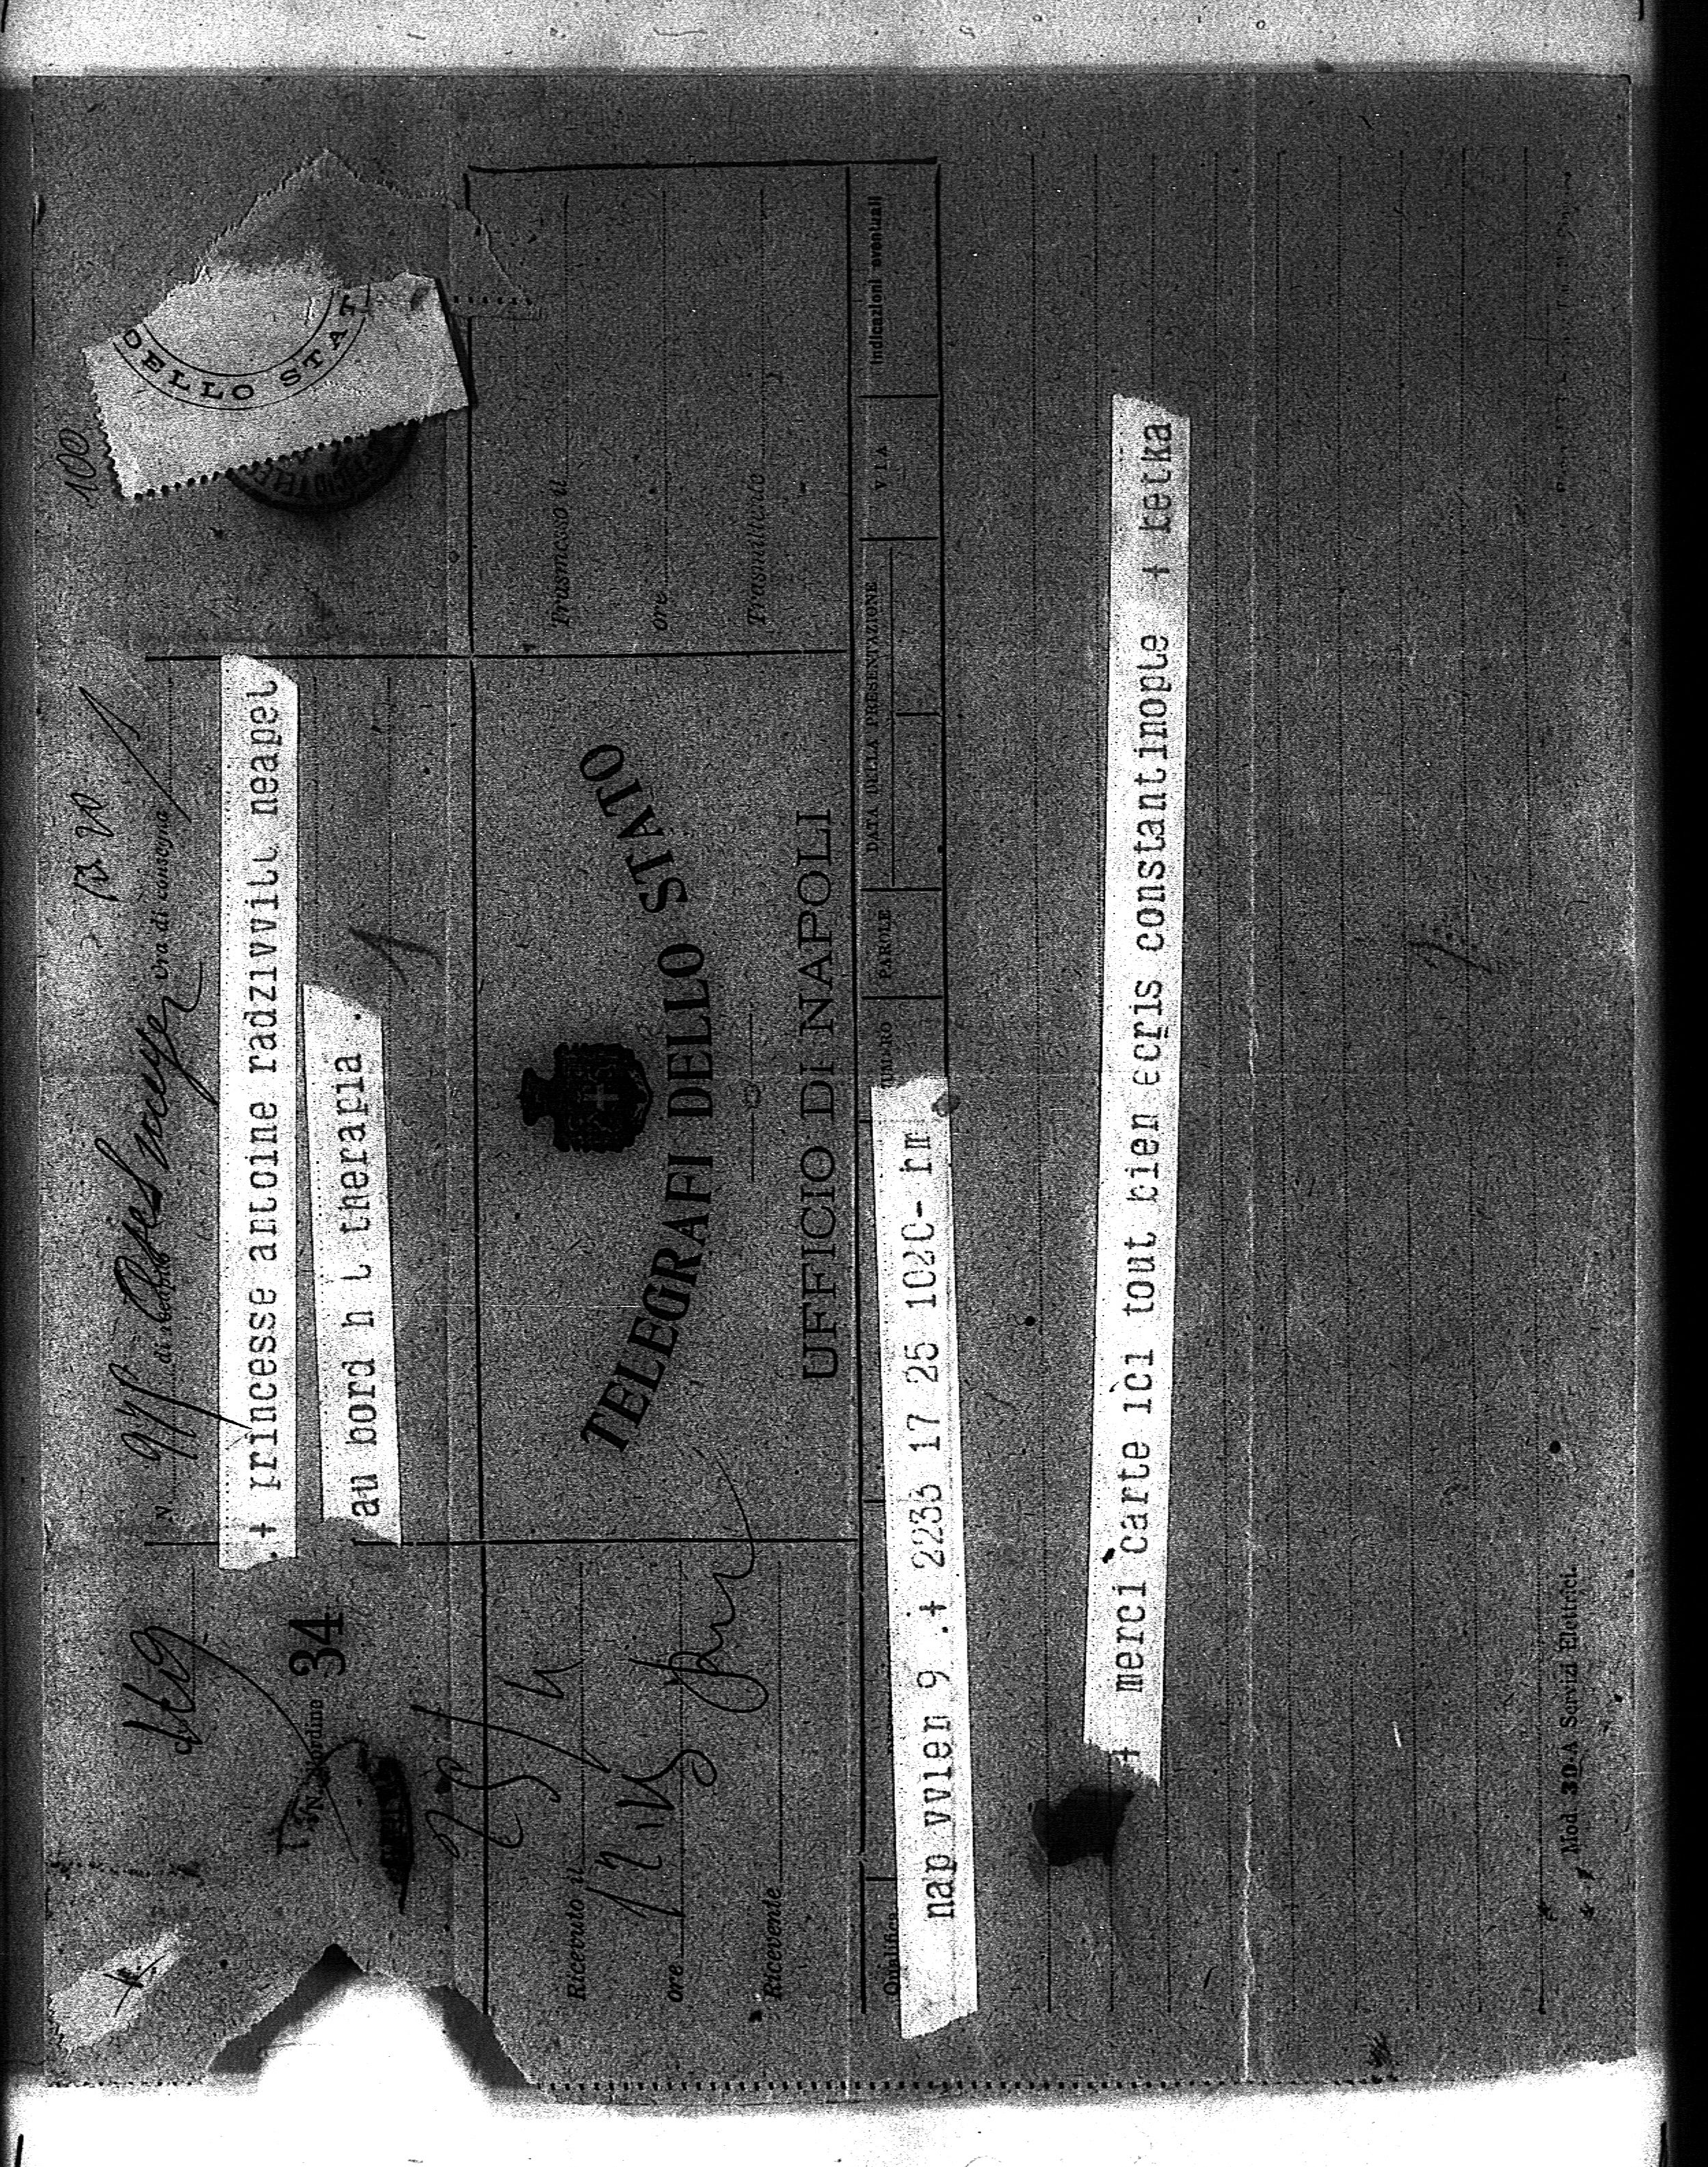 100
DELLO STAT
N. di recapito ora di consegna
+ princesse antoine radzivvill neapel
au bord h l therapia .
N. d'ordine 34
TELEGRAFI DELLO STATO
UFFICIO DI NAPOLI
Ricevuto il 25/4
ore
Ricevente
Trasmesso il
ore
Trasmittente
Qualifica
NUMERO
PAROLE
DATA DELLA PRESENTAZIONE
VIA
Indicazioni eventuali
nap vvien 9 .+ 2233 17 25 1020- hm
+ merci carte ici tout bien ecris constantinople + betka
Mod. 30-A Servizi Elettrici.